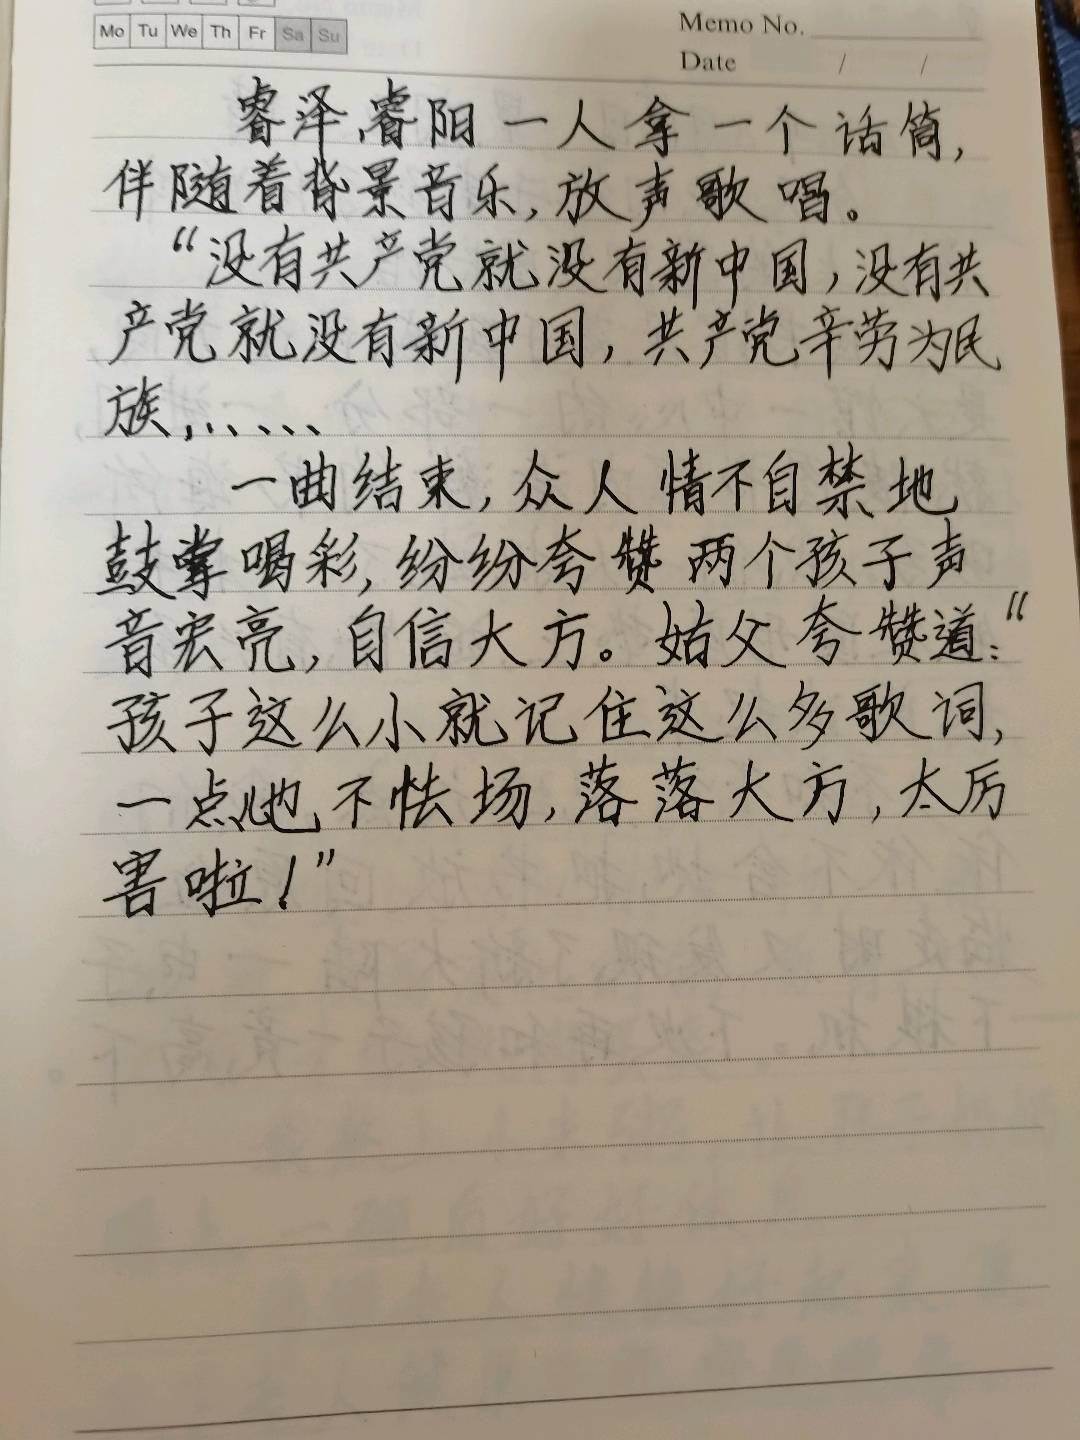 Mo Tu We Th Fr Sa Su
Memo No.
Date / /
睿泽,睿阳一人拿一个话筒,
伴随着背景音乐,放声歌唱。
“没有共产党就没有新中国,没有共
产党就没有新中国,共产党辛劳为民
族,、、、、、
一曲结束,众人情不自禁地
鼓掌喝彩,纷纷夸赞两个孩子声
音宏亮,自信大方。姑父夸赞道:“
孩子这么小就记住这么多歌词,
一点儿也不怯场,落落大方,太厉
害啦!”